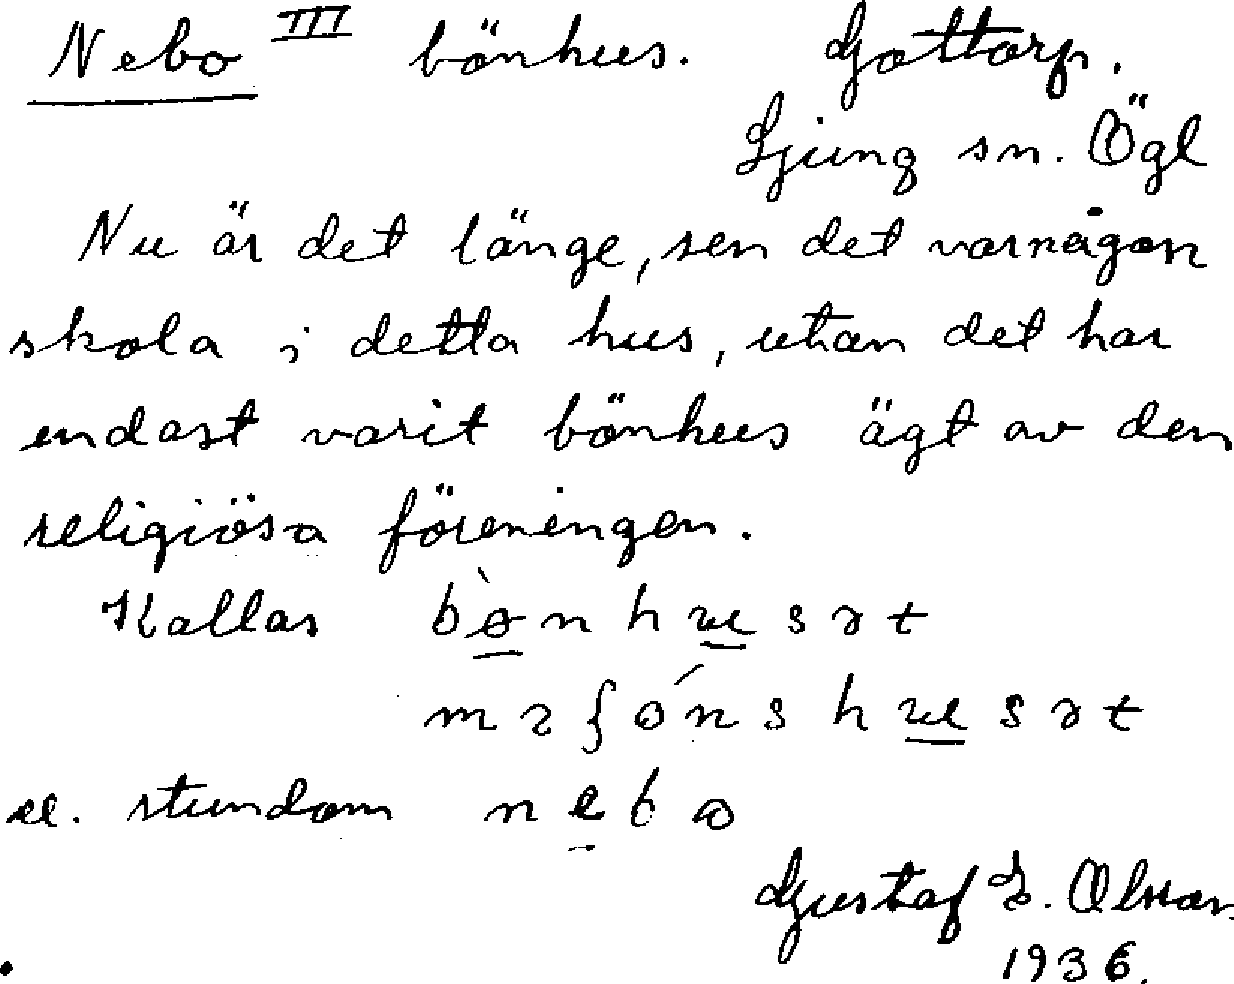 Nebo III bönhus. Gottorp.
Ljung sn. Ögl
Nu är det länge, sen det var någon
skola i detta hus, utan det har
endast varit bönhus ägt av den
religiösa föreningen.
Kallas
el. stundom nebo
Gustaf E. Olsson
1936.